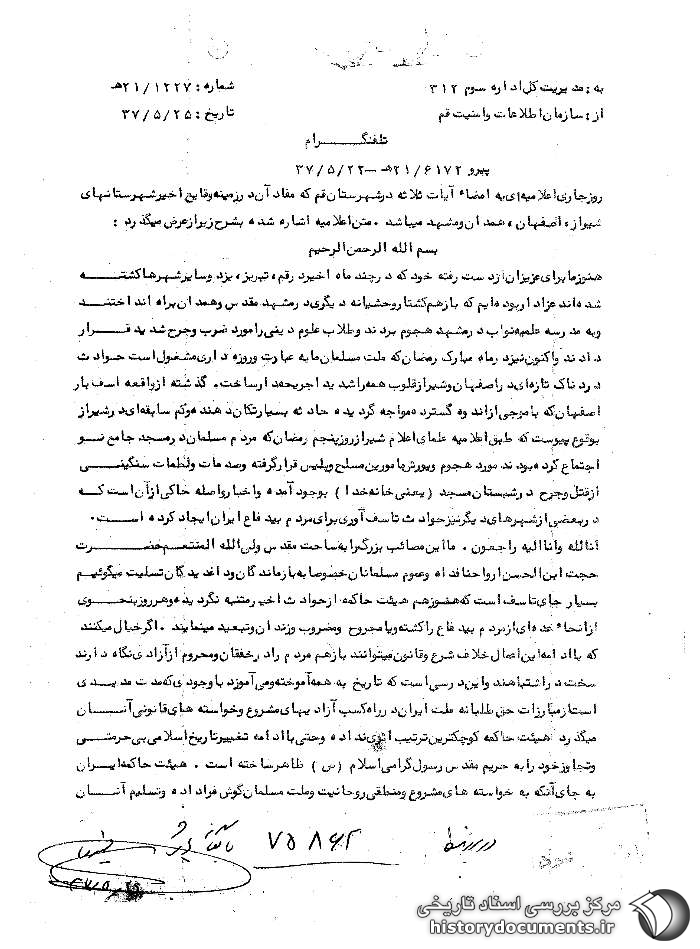 به : مدیریت کل اداره سوم ۳۱۲
شماره : ۲۱/۱۲۲۷هـ
از : سازمان اطلاعات و امنیت قم
تاریخ : ۳۷/۵/۲۵
تلفنگرام
پیرو ۲۱/۶۱۷۲هـ – ۳۷/۵/۲۲
روز جاری اعلامیه‌ای به امضاء آیات ثلاثه در شهرستان قم که مفاد آن در زمینه وقایع اخیر شهرستانهای
شیراز ، اصفهان ، همدان و مشهد میباشد . متن اعلامیه اشاره شده بشرح زیر از عرض میگذرد :
بسم الله الرحمن الرحیم
هنوز ما برای عزیزان از دست رفته خود که در چند ماه اخیر در قم ، تبریز ، یزد و سایر شهرها کشته
شده‌اند عزادار بوده‌ایم که باز هم کشتار وحشیانه دیگری در مشهد مقدس و همدان براه انداختند
و به مدرسه علمیه نواب در مشهد هجوم بردند و طلاب علوم دینی را مورد ضرب و جرح شدید قرار
دادند و اکنون نیز در ماه مبارک رمضان که ملت مسلمان ما به عبادت و روزه داری مشغول است حوادث
دردناک تازه‌ای در اصفهان و شیراز قلوب همه را شدیدا جریحه‌دار ساخت . گذشته از واقعه اسف بار
اصفهان که با موجی از اندوه گسترده مواجه گردیده حادثه بسیار تکان دهنده و کم سابقه‌ای در شیراز
بوقوع پیوست که طبق اعلامیه علمای اعلام شیراز روز پنجم رمضان که مردم مسلمان در مسجد جامع نو
اجتماع کرده بودند مورد هجوم و یورش مامورین مسلح و پلیس قرار گرفته و صدمات و لطمات سنگینی
از قتل و جرح در شبستان مسجد ( یعنی خانه خدا ) بوجود آمده و اخبار واصله حاکی از آن است که
در بعضی از شهرهای دیگر نیز حوادث تاسف آوری برای مردم بیدفاع ایران ایجاد کرده است .
انا لله و انا الیه راجعون . ما این مصائب بزرگ را به ساحت مقدس ولی الله المنتقم حضرت
حجت ابن الحسن ارواحنا فداه و عموم مسلمانان خصوصا به بازماندگان و داغدیدگان تسلیت میگوئیم
بسیار جای تاسف است که هنوز هم هیئت حاکمه از حوادث اخیر متنبه نگردیده و هر روز بنحوی
از انحاء عده‌ای از مردم بیدفاع را کشته و یا مجروح و مضروب و زندان و تبعید مینمایند . اگر خیال میکنند
که با ادامه این اعمال خلاف شرع و قانون میتوانند باز هم مردم را در خفقان و محروم از آزادی نگاه دارند
سخت در اشتباهند و این درسی است که تاریخ به همه آموخته و می‌آموزد با وجودی که مدت مدیدی
است از مبارزات حق طلبانه ملت ایران در راه کسب آزادیهای مشروع و خواسته‌های قانونی آنان
میگذرد هیئت حاکمه کوچکترین ترتیب اثری نداده و حتی با ادامه تغییر تاریخ اسلامی بی حرمتی
و تجاوز خود را به حریم مقدس رسول گرامی اسلام (ص) ظاهر ساخته است . هیئت حاکمه ایران
به جای آنکه به خواسته‌های مشروع و منطقی روحانیت و ملت مسلمان گوش فرا داده و تسلیم آنان
۷۵۸۶۲
مرکز بررسی اسناد تاریخی
historydocuments.ir